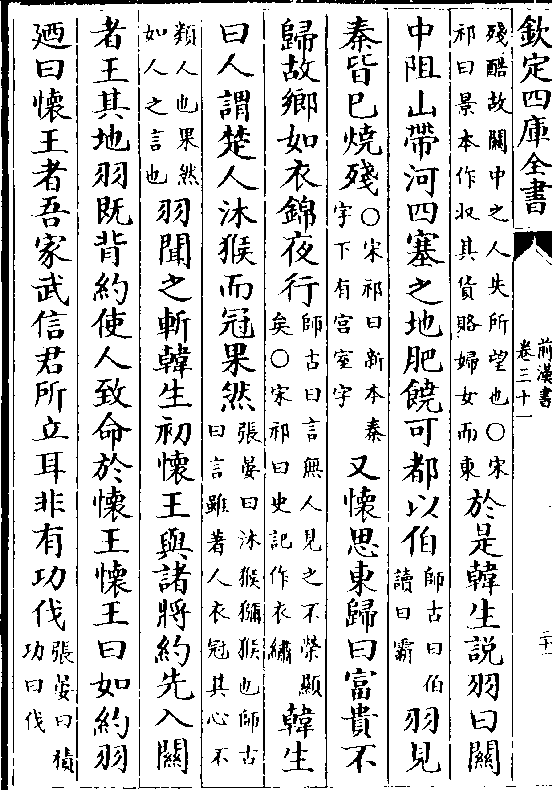 欽定四庫全書
前漢書
卷三十一
殘酷故關中之人失所望也〇宋
祁曰景本作收其貨賂婦女而東
於是韓生説羽曰關
中阻山帶河四塞之地肥饒可都以伯
師古曰伯
讀曰霸
羽見
秦皆已燒殘
〇宋祁曰新本秦
字下有宫室字
又懷思東歸曰富貴不
歸故鄉如衣錦夜行
師古曰言無人見之不榮顯
矣〇宋祁曰史記作衣繡
韓生
曰人謂楚人沐猴而冠果然
張晏曰沐猴獮猴也師古
曰言雖著人衣冠其心不
類人也果然
如人之言也
羽聞之斬韓生初懷王與諸將約先入關
者王其地羽既背約使人致命於懷王懷王曰如約羽
廼曰懷王者吾家武信君所立耳非有功伐
張晏曰積
功曰伐